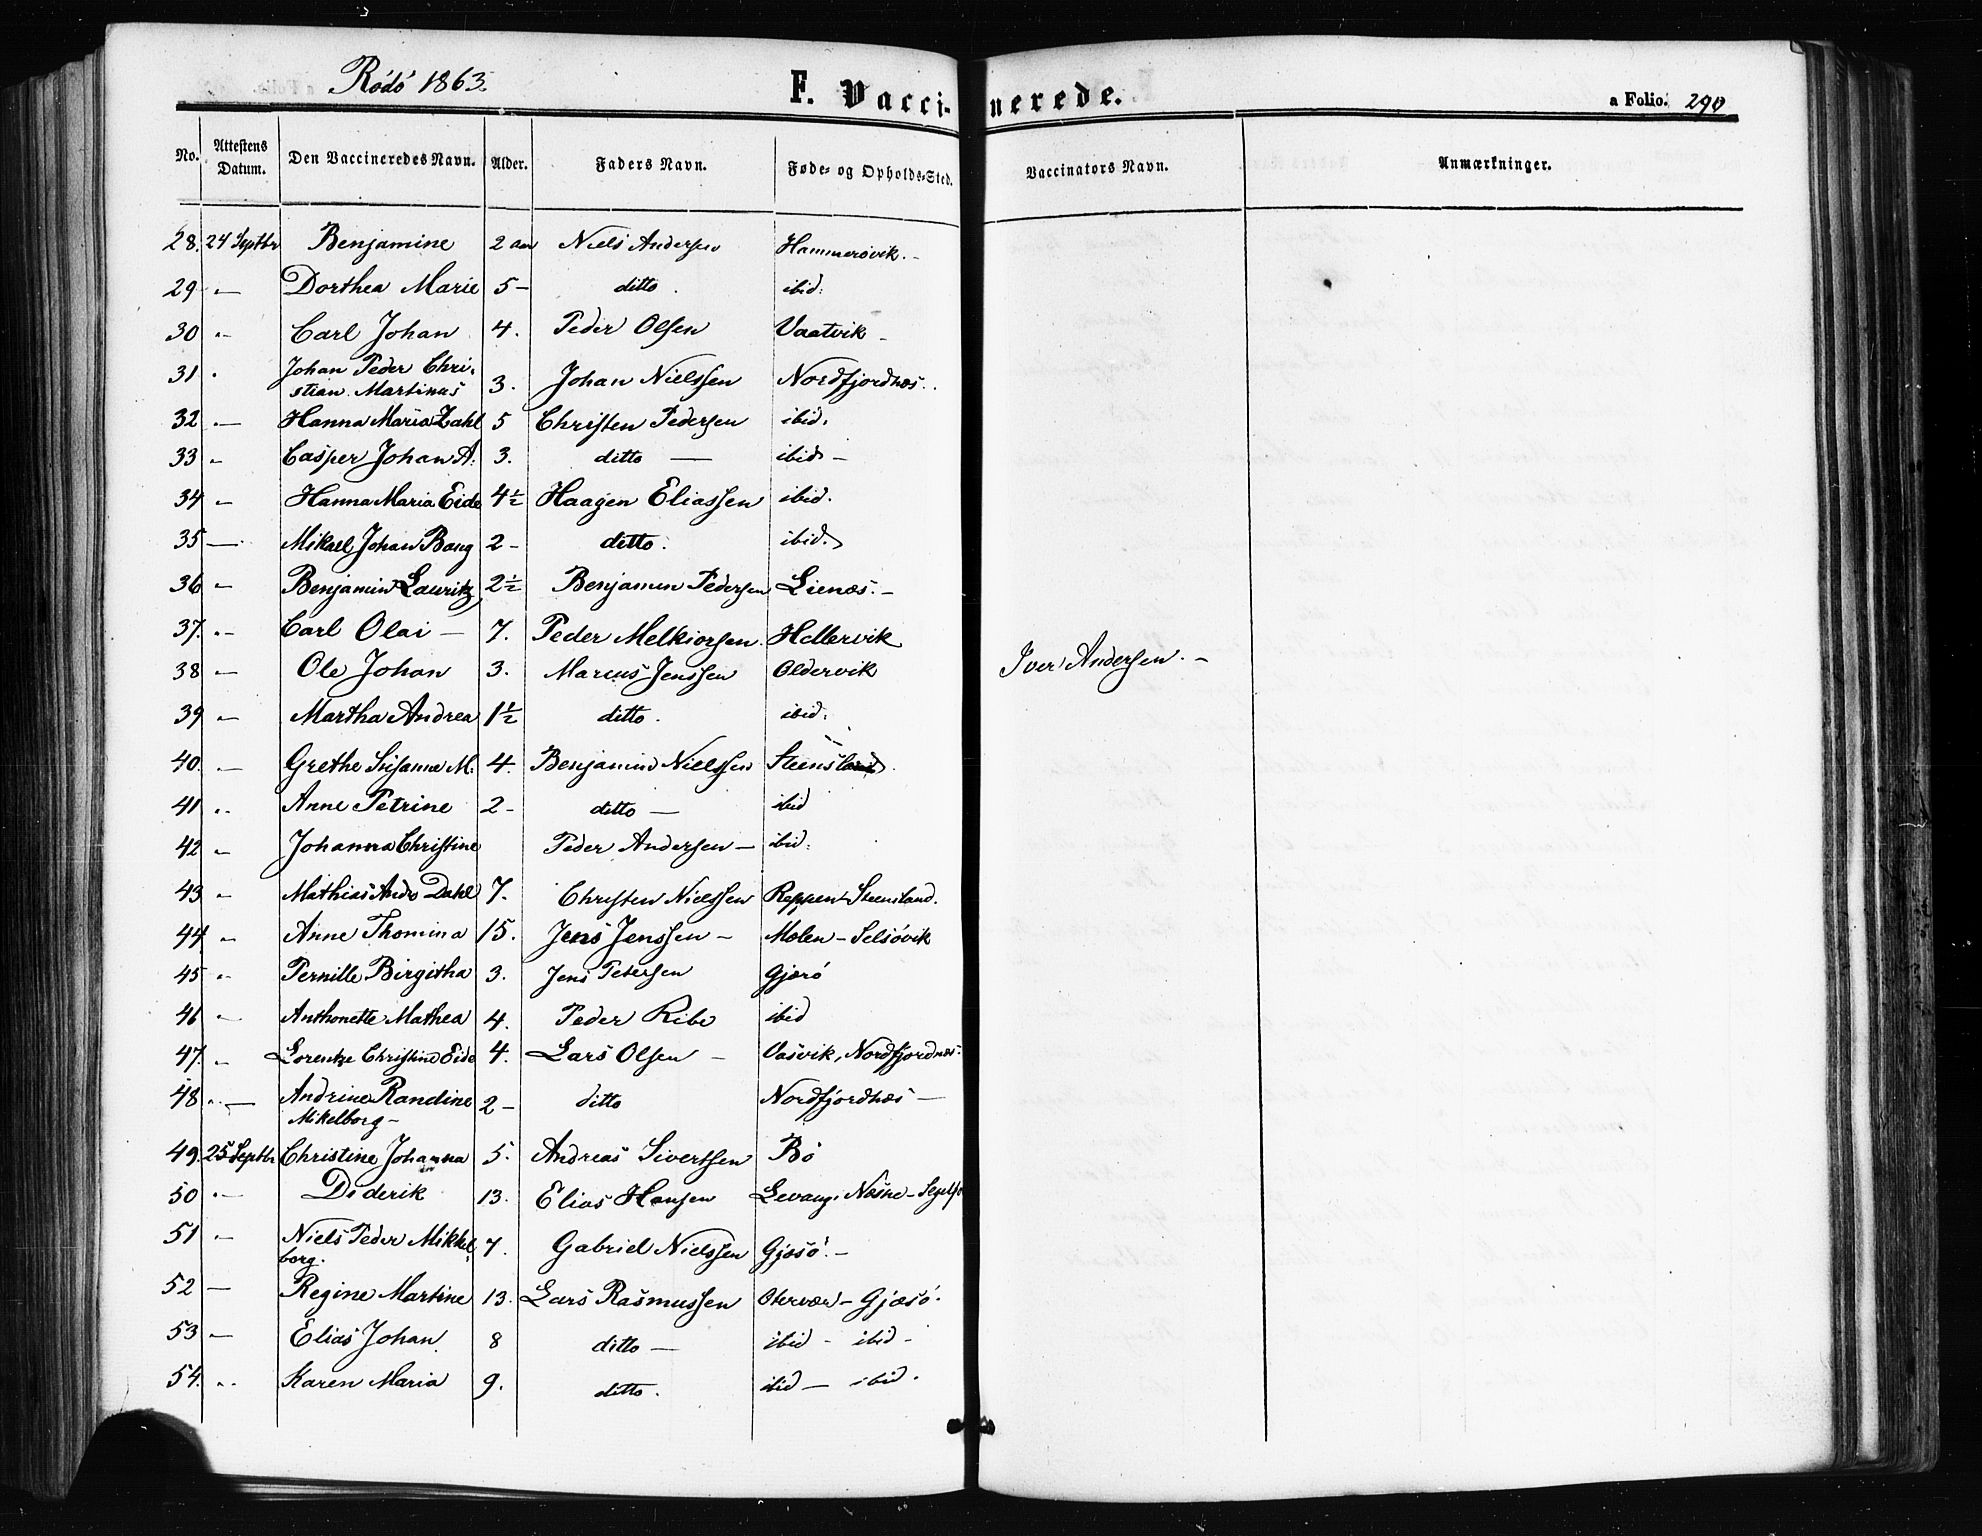 Rödö 1863.
F. Vaccinerede.
a Folio. 290
No. Attestens Datum. Den Vaccineredes Navn. Alder. Faders Navn. Føde- og Opholds-Sted. Vaccinators Navn. Anmærkninger.
28. 24 Septbr Benjamine 2 aar Niels Andersen Hammersvik. -
29 - Dorthea Marie 5 - ditto. ibid:
30 - Carl Johan 4. Peder Olsen Vaatvik -
31 Johan Peder Chri-
stian Martinus 3. Johan Nielssen Nordfjordnæs.
32 - Hanna Maria Zahl 5 Christen Pedersen ibid.
33 - Casper Johan A. 3. ditto - ibid -
34 - Hanna Maria Eide 4½ Haagen Eliassen ibid.
35 - Mikael Johan Bang 2 - ditto. ibid.
36 - Benjamin Lauritz 2½ Benjamin Pedersen Lienæs. -
37. - Carl Olai - 7. Peder Melkiorsen Hellervik
38 - Ole Johan 3. Marcus Jenssen Oldervik Iver Andersen. -
39 - Martha Andrea 1½ ditto. ibid:
40. - Grethe Susanna M. 4. Benjamin Nielssen Steensland.
41 - Anne Petrine 2 - ditto - ibid
42 - Johanna Christine Peder Andersen - ibid:
43 - Mathias Andr. Dahl 7. Christen Nielssen Reppen Steensland.
44 - Anne Thomina 15. Jens Jenssen - Molen - Selsövik
45 - Pernille Birgitha 3. Jens Petersen Gjerö
46 - Anthonette Mathea 4. Peder Ribe ibid
47. - Lorentze Christine Eide 4. Lars Olsen - Vasvik, Nordfjordnæs.
48 - Andrine Randine
Mikelborg - 2 - ditto Nordfjordnæs -
49. 25 Septbr Christine Johanna 5. Andreas Sivertsen Bö
50 - Diderik 13. Elias Hansen Levang, Næsne -
51 - Niels Peder Mikkel-
borg. 7. Gabriel Nielssen Gjæsö. -
52 - Regine Martine 13. Lars Rasmussen Otervær - Gjæsö.
53 - Elias Johan 8 ditto - ibid - ibid -
54. - Karen Maria 9. ditto. ibid - ibid.